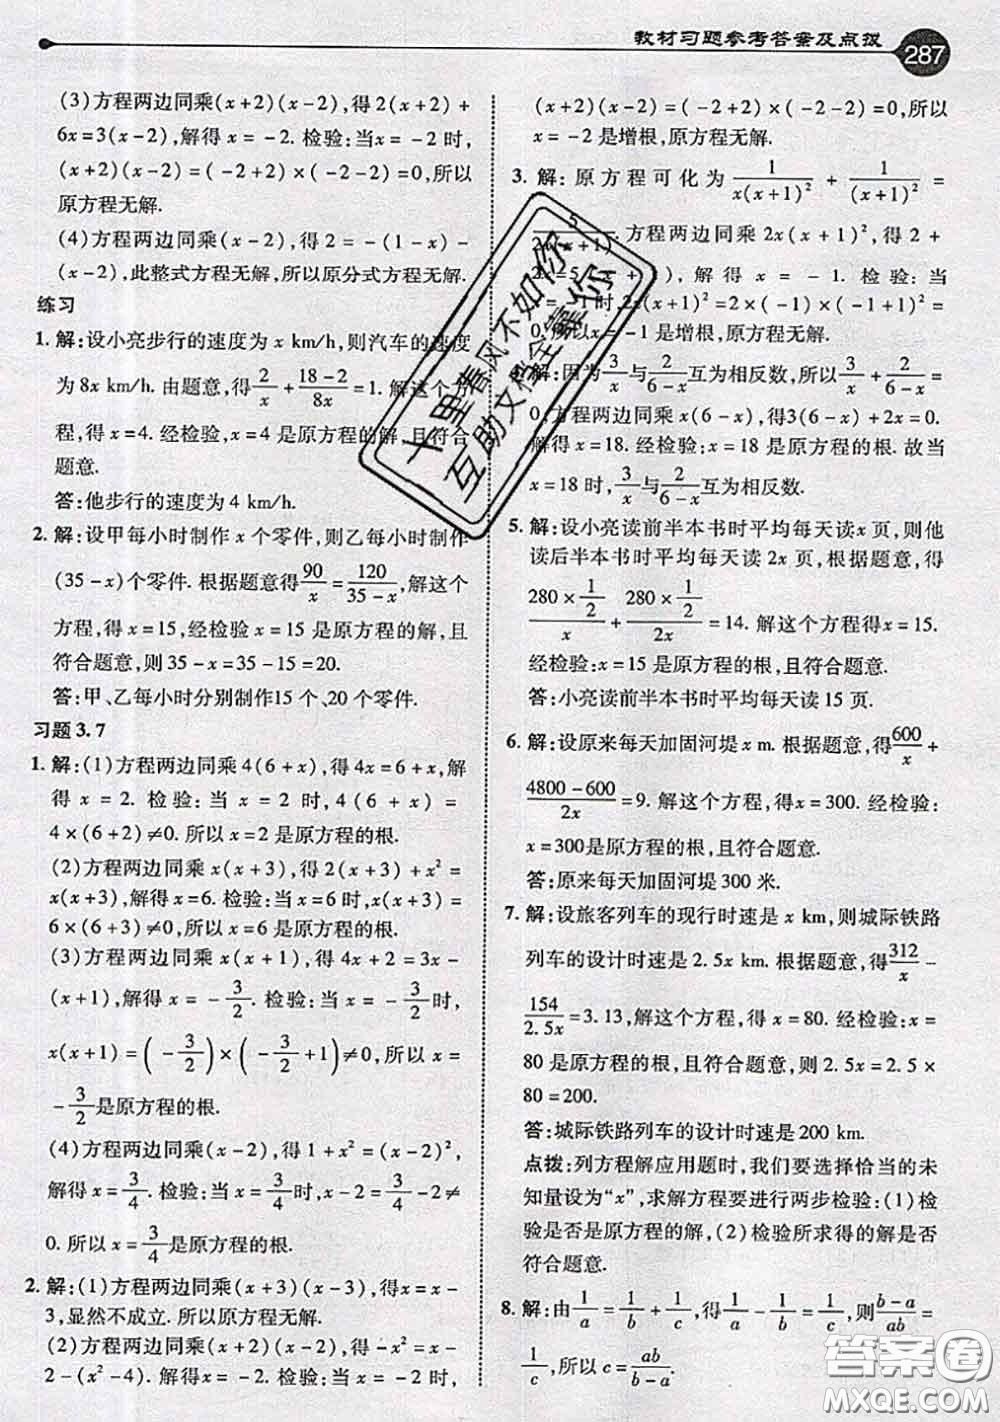 教材习题参考答案及点拨
287
(3)方程两边同乘(x+2)(x-2),得2(x+2)+
6x=3(x-2),解得 x= -2. 检验:当 x= -2 时,
(x+2)(x-2)=(-2+2)×(-2-2)=0,所以
原方程无解.
(4)方程两边同乘(x-2),得 2= -(1-x)-
(x-2),此整式方程无解,所以原分式方程无解.
练习
1. 解:设小亮步行的速度为 x km/h,则汽车的速度
为 8x km/h. 由题意,得 2/x + (18-2)/8x = 1. 解这个方
程,得 x=4. 经检验,x=4 是原方程的解,且符合
题意.
答:他步行的速度为 4 km/h.
2. 解:设甲每小时制作 x 个零件,则乙每小时制作
(35-x)个零件. 根据题意得 90/x = 120/(35-x),解这个
方程,得 x=15,经检验 x=15 是原方程的解,且
符合题意,则 35-x=35-15=20.
答:甲、乙每小时分别制作15 个、20 个零件.
习题 3.7
1. 解:(1)方程两边同乘 4(6+x),得 4x=6+x,解
得 x = 2. 检验:当 x = 2 时,4(6+x) =
4×(6+2)≠0. 所以 x=2 是原方程的根.
(2)方程两边同乘 x(x+3),得 2(x+3)+x² =
x(x+3),解得 x=6. 检验:当 x=6 时,x(x+3)=
6×(6+3)≠0. 所以 x=6 是原方程的根.
(3)方程两边同乘 x(x+1),得 x² = x(x+1)-
3(x+1),解得 x = -3/2. 检验:当 x = -3/2 时,
x(x+1) = (-3/2)×(-3/2+1)≠0,所以 x =
-3/2 是原方程的根.
(4)方程两边同乘(x-2),得 1+x²=(x-2)²,
解得 x = 3/4. 检验:当 x = 3/4 时,x-2 = 3/4 -2≠
0. 所以 x = 3/4 是原方程的根.
2. 解:(1)方程两边同乘(x+3)(x-3),得x=x-
3,显然不成立. 所以原方程无解.
(2)方程两边同乘(x+2)(x-2),得 x-
2-(4-x)=0,解得 x= -2. 检验:当 x= -2 时,
(x+2)(x-2)=(-2+2)×(-2-2)=0,所以
x= -2 是增根,原方程无解.
3. 解:原方程可化为 1/x(x+1)² + 1/(x+1)² =
5/2x(x+1). 方程两边同乘 2x(x+1)²,得 2+
解得 x = -1. 检验:当
x= -1 时,2x(x+1)²=2×(-1)×(-1+1)²=
0,所以 x= -1 是增根,原方程无解.
4. 解:因为 3/x 与 2/(6-x) 互为相反数,所以 3/x + 2/(6-x) =
0,方程两边同乘 x(6-x),得3(6-x)+2x=0.
解得 x=18. 经检验:x=18 是原方程的根. 故当
x=18 时,3/x 与 2/(6-x) 互为相反数.
5. 解:设小亮读前半本书时平均每天读x 页,则他
读后半本书时平均每天读 2x 页,根据题意,得
(280×1/2)/x + (280×1/2)/2x = 14. 解这个方程得 x=15.
经检验:x=15 是原方程的根,且符合题意.
答:小亮读前半本书时平均每天读 15 页.
6. 解:设原来每天加固河堤 x m. 根据题意,得 600/x +
(4800-600)/2x = 9. 解这个方程,得 x=300. 经检验:
x=300是原方程的根,且符合题意.
答:原来每天加固河堤 300 米.
7. 解:设旅客列车的现行时速是 x km,则城际铁路
列车的设计时速是 2.5x km. 根据题意,得 312/x -
154/2.5x = 3.13,解这个方程,得 x=80. 经检验:x=
80 是原方程的根,且符合题意,所以 2.5x=2.5×
80=200.
答:城际铁路列车的设计时速是 200 km.
点拨:列方程解应用题时,我们要选择恰当的未
知量设为“x”,求解方程要进行两步检验:(1)检
验是否是原方程的解,(2)检验所求得的解是否
符合题意.
8. 解:由 1/a = 1/b + 1/c,得 1/a - 1/b = 1/c,则 (b-a)/ab =
1/c,所以 c = ab/(b-a).
十里春风不如你
互助文档全靠你
答案圈
MXQE.COM